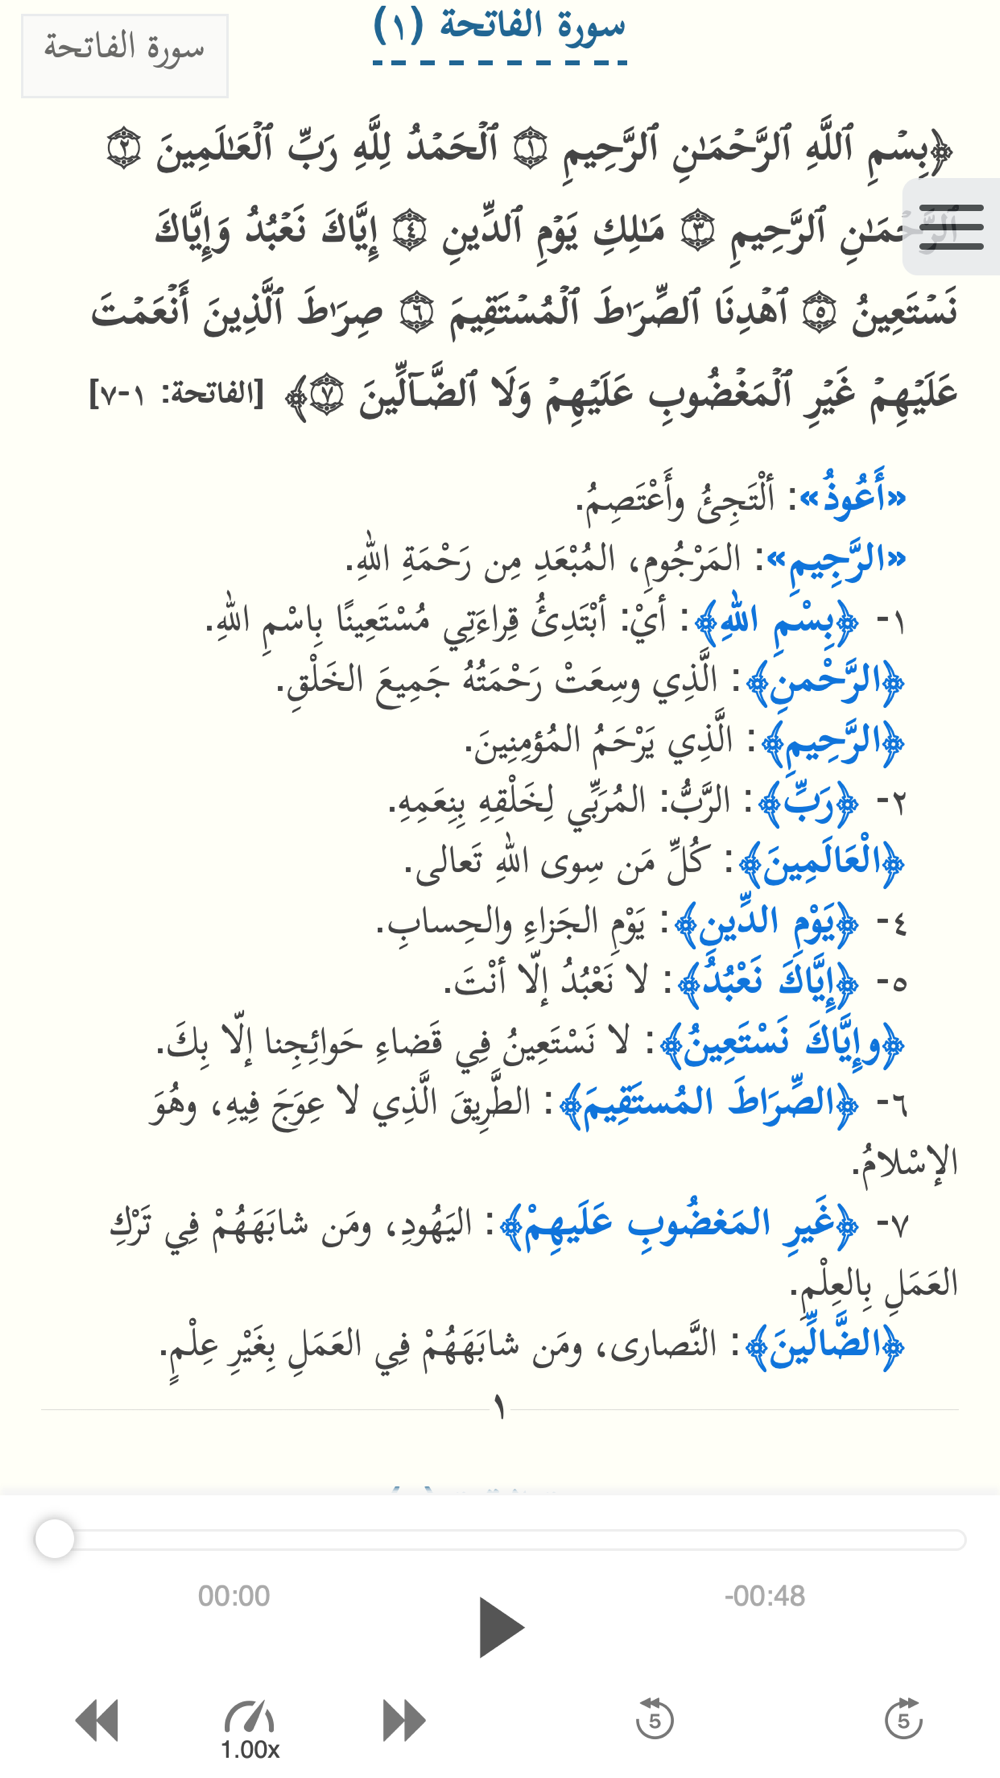 سورة الفاتحة (١)
سورة الفاتحة
﴿بِسۡمِ ٱللَّهِ ٱلرَّحۡمَـٰنِ ٱلرَّحِیمِ ١ ٱلۡحَمۡدُ لِلَّهِ رَبِّ ٱلۡعَـٰلَمِینَ ٢
ٱلرَّحۡمَـٰنِ ٱلرَّحِیمِ ٣ مَـٰلِكِ یَوۡمِ ٱلدِّینِ ٤ إِیَّاكَ نَعۡبُدُ وَإِیَّاكَ
نَسۡتَعِینُ ٥ ٱهۡدِنَا ٱلصِّرَ ٰطَ ٱلۡمُسۡتَقِیمَ ٦ صِرَ ٰطَ ٱلَّذِینَ أَنۡعَمۡتَ
عَلَیۡهِمۡ غَیۡرِ ٱلۡمَغۡضُوبِ عَلَیۡهِمۡ وَلَا ٱلضَّاۤلِّینَ ٧﴾ [الفاتحة: ١-٧]
«أَعُوذُ»: ألْتَجِئُ وأَعْتَصِمُ.
«الرَّجِيمِ»: المَرْجُومِ، المُبْعَدِ مِن رَحْمَةِ اللهِ.
١- ﴿بِسْمِ اللهِ﴾: أيْ: أبْتَدِئُ قِراءَتِي مُسْتَعِينًا بِاسْمِ اللهِ.
﴿الرَّحْمنِ﴾: الَّذِي وسِعَتْ رَحْمَتُهُ جَمِيعَ الخَلْقِ.
﴿الرَّحِيمِ﴾: الَّذِي يَرْحَمُ المُؤمِنِينَ.
٢- ﴿رَبِّ﴾: الرَّبُّ: المُرَبِّي لِخَلْقِهِ بِنِعَمِهِ.
﴿الْعَالَمِينَ﴾: كُلِّ مَن سِوى اللهِ تَعالى.
٤- ﴿يَوْمِ الدِّينِ﴾: يَوْمِ الجَزاءِ والحِسابِ.
٥- ﴿إِيَّاكَ نَعْبُدُ﴾: لا نَعْبُدُ إلّا أنْتَ.
﴿وإِيَّاكَ نَسْتَعِينُ﴾: لا نَسْتَعِينُ فِي قَضاءِ حَوائِجِنا إلّا بِكَ.
٦- ﴿الصِّرَاطَ المُستَقِيمَ﴾: الطَّرِيقَ الَّذِي لا عِوَجَ فِيهِ، وهُوَ
الإسْلامُ.
٧- ﴿غَيرِ المَغضُوبِ عَلَيهِمْ﴾: اليَهُودِ، ومَن شابَهَهُمْ فِي تَرْكِ
العَمَلِ بِالعِلْمِ.
﴿الضَّالِّينَ﴾: النَّصارى، ومَن شابَهَهُمْ فِي العَمَلِ بِغَيْرِ عِلْمٍ.
١
00:00
-00:48
1.00x
5
5